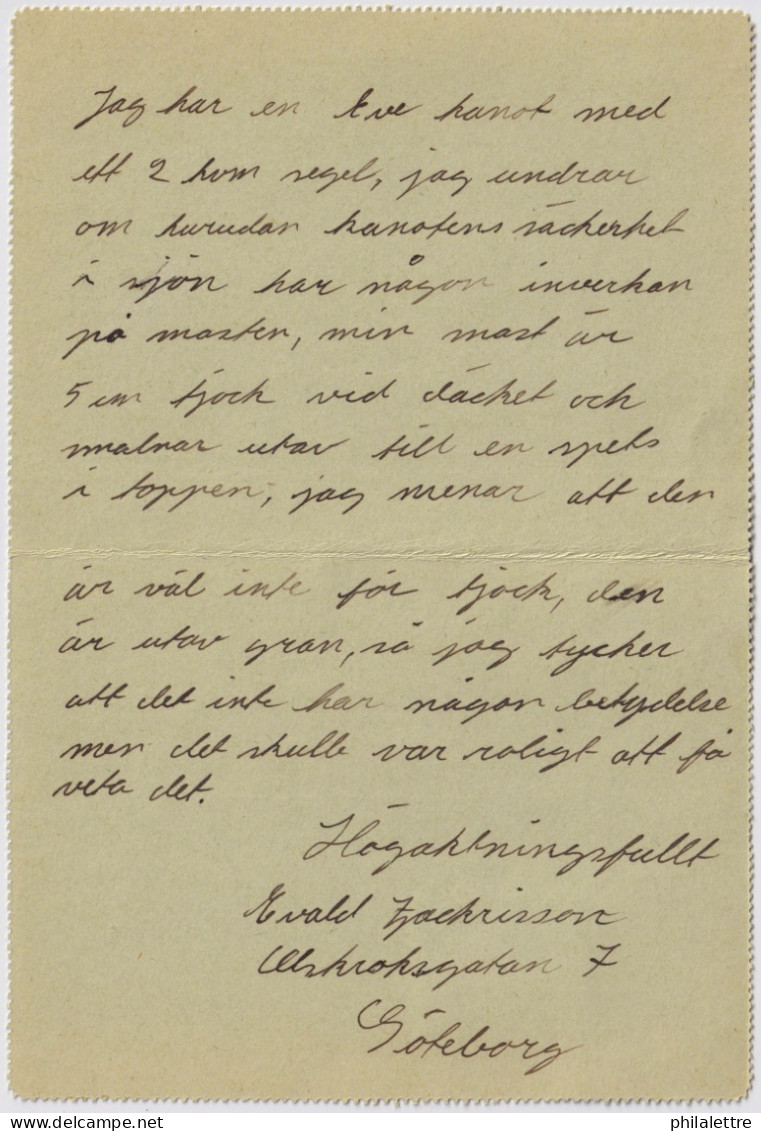 Jag har en Eve kanot med
ett 2 kvm segel, jag undrar
om hurudan kanotens säckerhet
i sjön har någon inverkan
på masten, min mast är
5 cm tjock vid däcket och
smalnar utav till en spets
i toppen, jag menar att den
är väl inte för tjock, den
är utav gran, så jag tycker
att det inte har någon betydelse
men det skulle var roligt att få
veta det.
Högaktningsfullt
Evald Zackrisson
Ulskroksgatan 7
Göteborg
philalettre